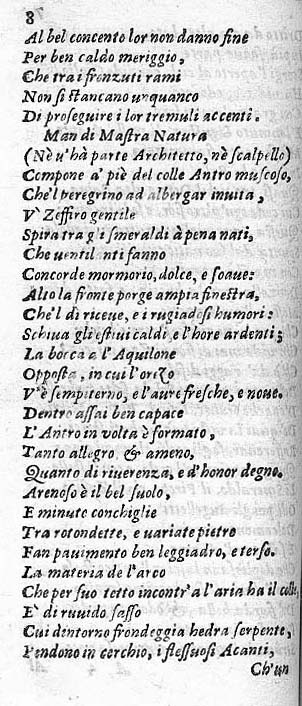 8
Al bel concento lor non danno fine
Per ben caldo meriggio,
Che tra i fronzuti rami
Non si stancano unquanco
Di proseguire i lor tremuli accenti.
Man di Mastra Natura
(Nè u'hà parte Architetto, nè scalpello)
Compone a' piè del colle Antro muscoso,
Che'l peregrino ad albergar inuita,
V' Zeffiro gentile
Spira tra gli smeraldi à pena nati,
Che uentilanti fanno
Concorde mormorio, dolce, e soaue:
Alto la fronte porge ampia finestra,
Che'l dì riceue, e i rugiadosi humori:
Schiua gli estiui caldi e l'hore ardenti;
La bocca a l'Aquilone
Opposta, in cui l'orezo
V'è sempiterno, e l'aure fresche, e noue.
Dentro assai ben capace
L'Antro in volta è formato,
Tanto allegro, & ameno,
Quanto di riuerenza, e d'honor degno.
Arenoso è il bel suolo,
E minute conchiglie
Tra rotondette, e uariate pietre
Fan pauimento ben leggiadro, e terso.
La materia de l'arco
Che per suo tetto incontr'a l'aria ha il colle,
E' di ruuido sasso
Cui dintorno frondeggia hedra serpente,
Pendono in cerchio, i flessuosi Acanti,
Ch'un